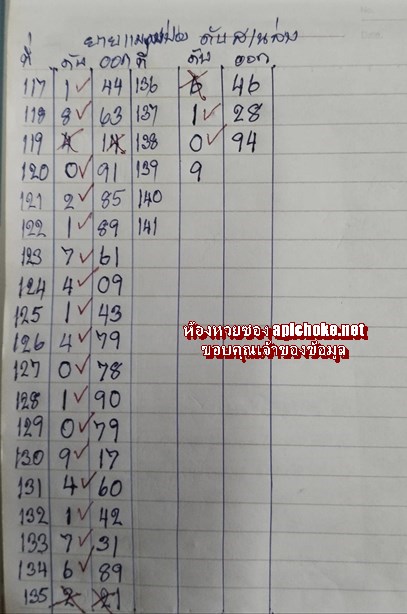 ดับ ล/นล่าง
ที่ ดับ ออก ที่ ดับ ออก
117 1 ✓ 44 136 6 46
118 8 ✓ 63 137 1 ✓ 28
119 4 14 138 0 ✓ 94
120 0 ✓ 91 139 9
121 2 ✓ 85 140
122 1 ✓ 89 141
123 7 ✓ 61
124 4 ✓ 09
125 1 ✓ 43
126 4 ✓ 79
127 0 ✓ 78
128 1 ✓ 90
129 0 ✓ 79
130 9 ✓ 17
131 4 ✓ 60
132 1 ✓ 42
133 7 ✓ 31
134 6 ✓ 89
135 2 21
ห้องหวยซอง apichoke.net
ขอบคุณเจ้าของข้อมูล